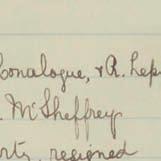 Conalogue, & R. Lep
. McSheffrey
rty, resigned